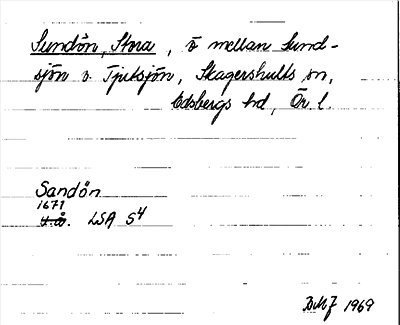 Sundön, Stora, ö mellan Sund-
sjön o. Tjutsjön, Skagershults sn,
Edsbergs hd, Ör l.
Sandön
1671
U.å. LSA S4
1969